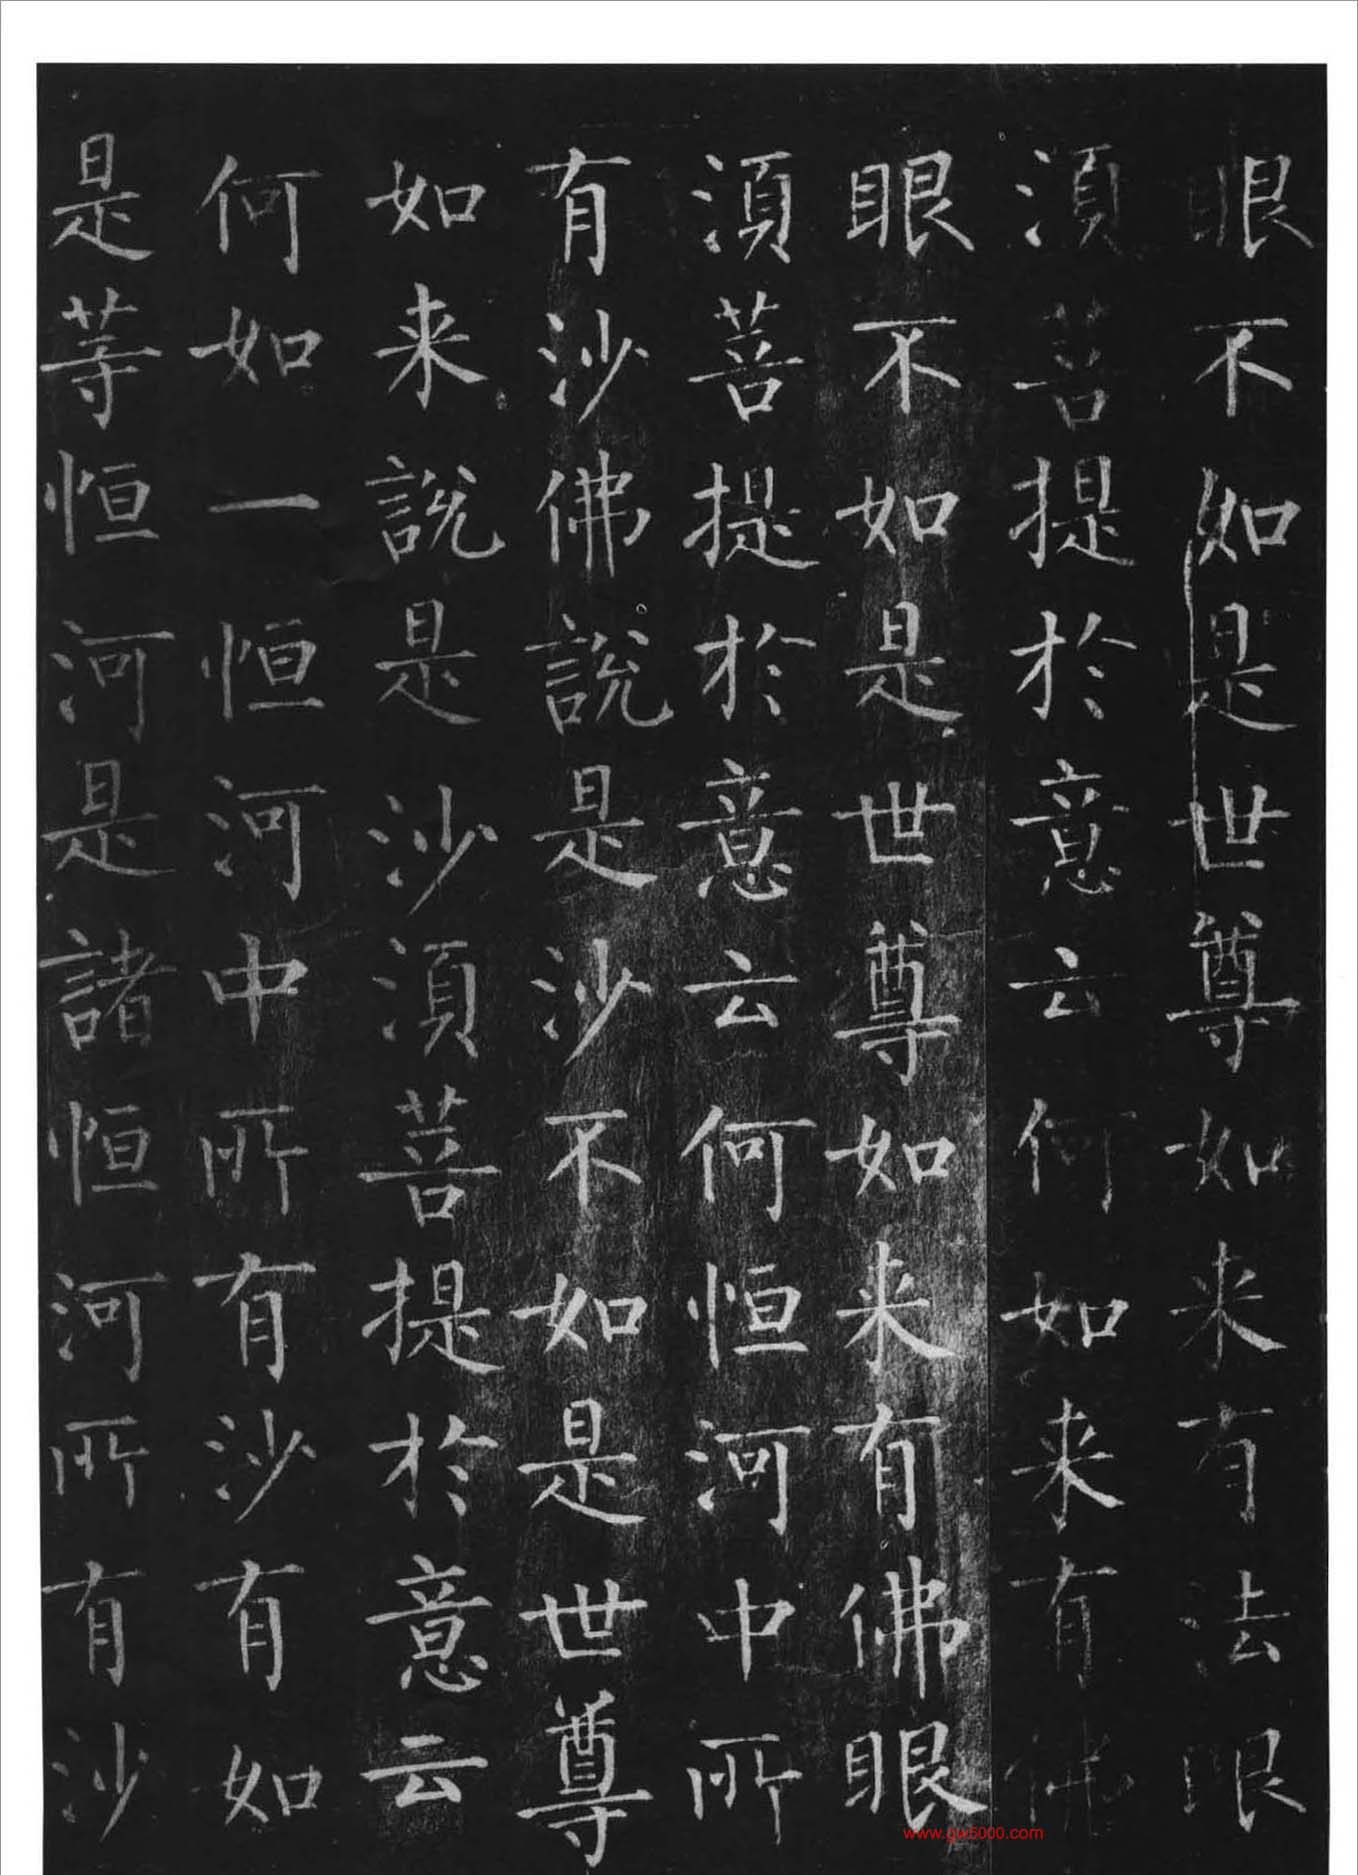 眼不如是世尊如来有法眼
湏菩提於意云何如来有佛
眼不如是世尊如来有佛眼
湏菩提於意云何恒河中所
有沙佛說是沙不如是世尊
如来說是沙湏菩提於意云
何如一恒河中所有沙有如
是等恒河是諸恒河所有沙
www.gw5000.com